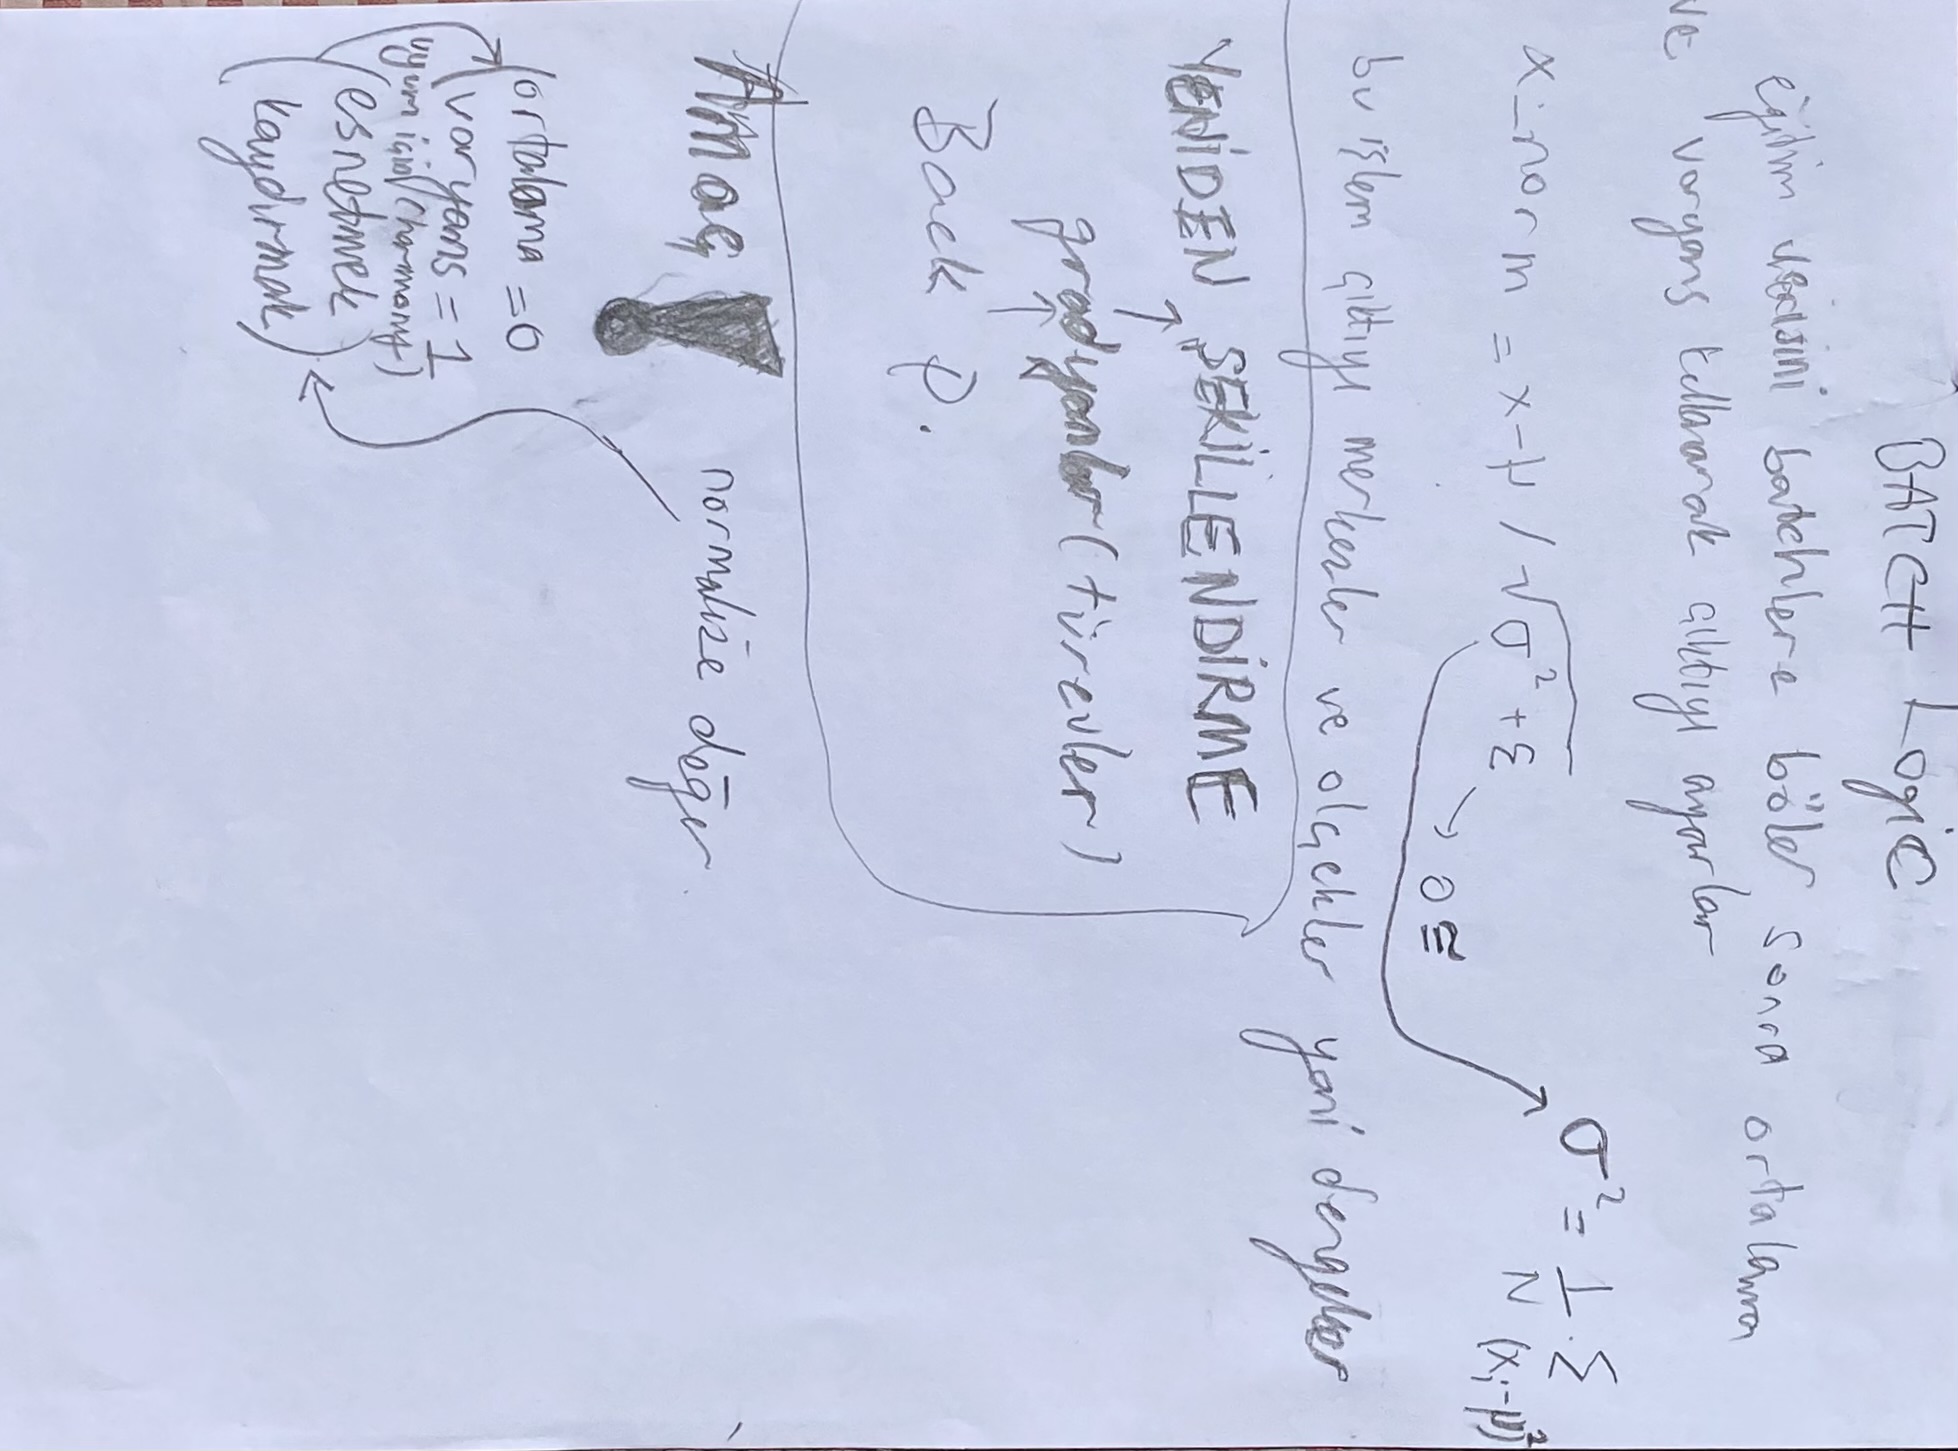 BATCH Logic
eğitim verisini batchlere böler sonra ortalama
ve varyans kullanarak çıktıyı ayarlar
x_norm = x-μ / √σ²+ε → 0 ≅
σ² = 1/N . Σ (xᵢ-μ)²
bu işlem çıktıyı merkezler ve ölçekler yani dengeler
YENİDEN ŞEKİLLENDİRME
gradyanlar (türevler)
Back P.
Amaç
normalize değer
(ortalama = 0
(varyans = 1
uyum için (harmony)
(esnetmek)
(kaydırmak)